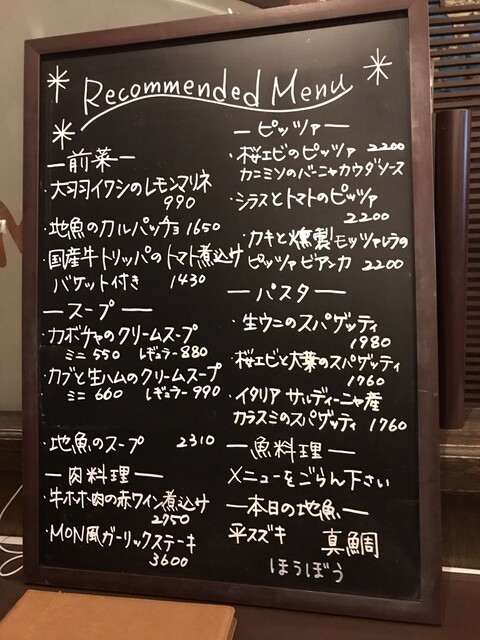 Recommended Menu
ー前菜ー
・大羽イワシのレモンマリネ
990
・地魚のカルパッチョ 1650
・国産牛トリッパのトマト煮込み
バゲット付き 1430
ースープー
・カボチャのクリームスープ
ミニ 550 レギュラー 880
・カブと生ハムのクリームスープ
ミニ 660 レギュラー 990
・地魚のスープ 2310
ー肉料理ー
・牛ホホ肉の赤ワイン煮込み
2750
・MON風ガーリックステーキ
3600
ーピッツァー
・桜エビのピッツァ 2200
カニミソのバーニャカウダソース
・シラスとトマトのピッツァ
2200
・カキと燻製モッツァレラの
ピッツァビアンカ 2200
ーパスター
・生ウニのスパゲッティ
1980
・桜エビと大葉のスパゲッティ
1760
・イタリア サルディーニャ産
カラスミのスパゲッティ 1760
ー魚料理ー
メニューをごらん下さい
ー本日の地魚ー
平スズキ 真鯛
ほうぼう